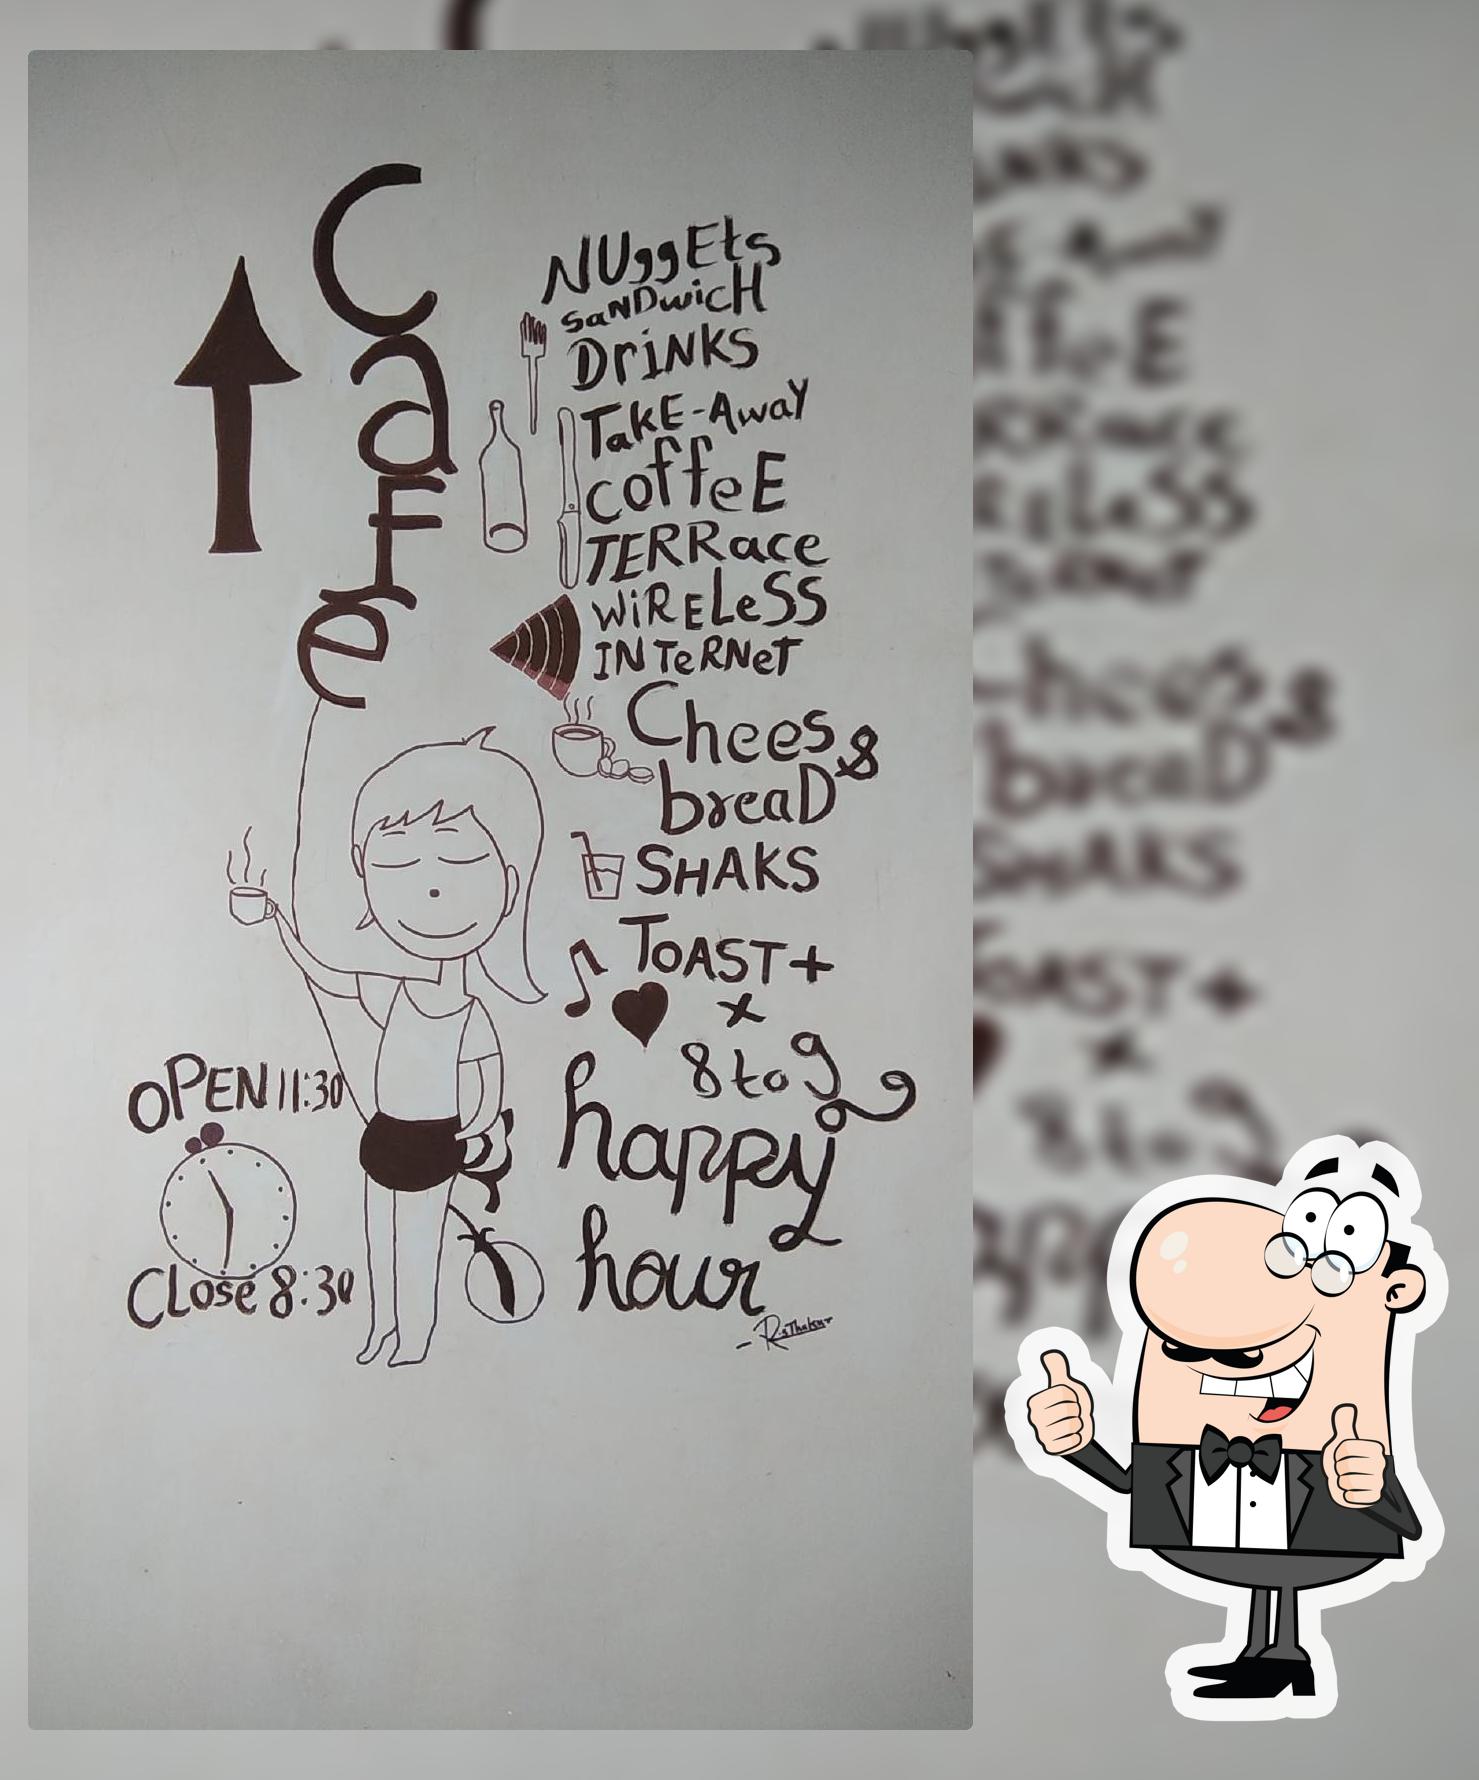 Cafe
NUggEts
SaNDwicH
DriNKS
TakE-AwaY
coffeE
TERRace
WiRELeSS
INTeRNeT
Chees &
breaD
SHAKS
ToAST+
x
8 to 9
happy
hour
OPEN 11:30
CLose 8:30